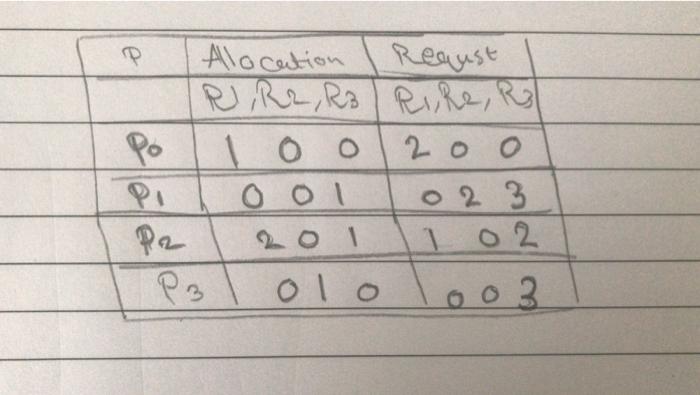 P Allocation Requst
R1, R2, R3 R1, R2, R3
P0 1 0 0 2 0 0
P1 0 0 1 0 2 3
P2 2 0 1 1 0 2
P3 0 1 0 0 0 3